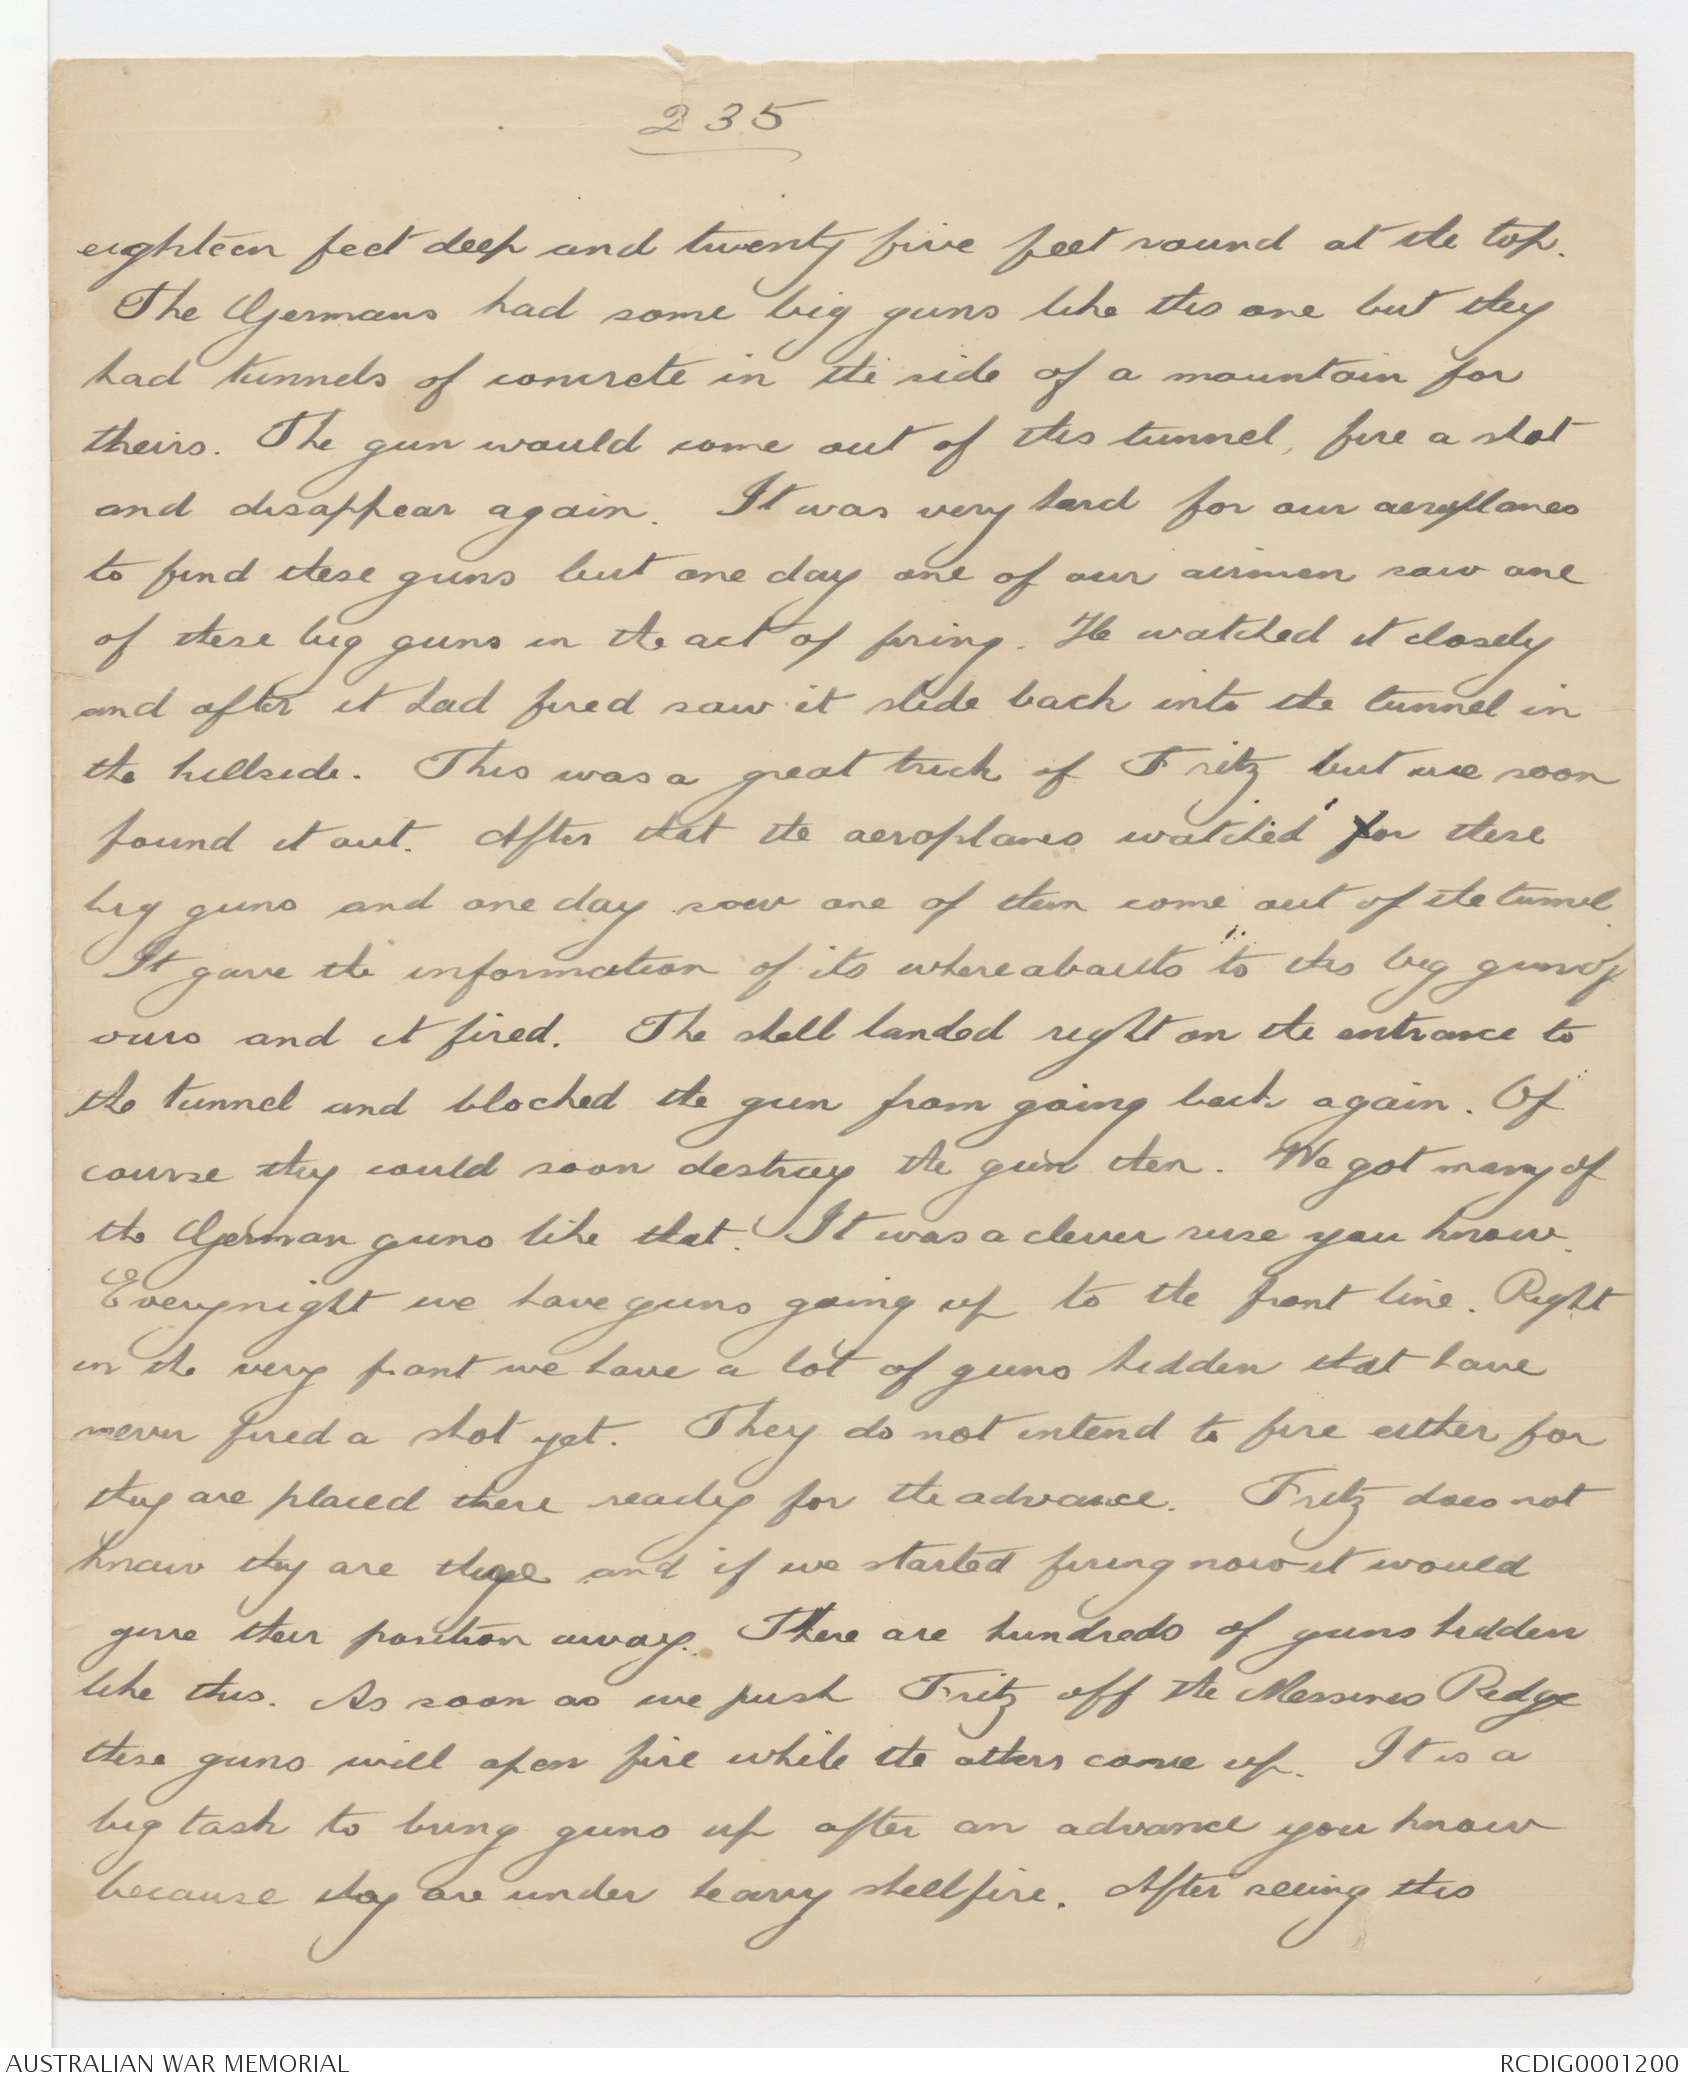 235
eighteen feet deep and twenty five feet round at the top.
The Germans had some big guns like this one but they
had tunnels of concrete in the side of a mountain for
theirs. The gun would come out of this tunnel, fire a shot
and disappear again. It was very hard for our aeroplanes
to find these guns but one day one of our airmen saw one
of these big guns in the act of firing. He watched it closely
and after it had fired saw it slide back into the tunnel in
the hillside. This was a great trick of Fritz but we soon
found it out. After that the aeroplanes watched for these
big guns and one day saw one of them come out of the tunnel.
It gave the information of its whereabouts to this big gun of
ours and it fired. The shell landed right on the entrance to
the tunnel and blocked the gun from going back again. Of
course they could soon destroy the gun then. We got many of
the German guns like that. It was a clever ruse you know.
Everynight we have guns going up to the front line. Right
in the very front we have a lot of guns hidden that have
never fired a shot yet. They do not intend to fire either for
they are placed there ready for the advance. Fritz does not
know they are there and if we started firing now it would
give their position away. There are hundreds of guns hidden
like this. As soon as we push Fritz off the Messines Ridge
these guns will open fire while the others come up. It is a
big task to bring guns up after an advance you know
because they are under heavy shellfire. After seeing this
AUSTRALIAN WAR MEMORIAL
RCDIG0001200